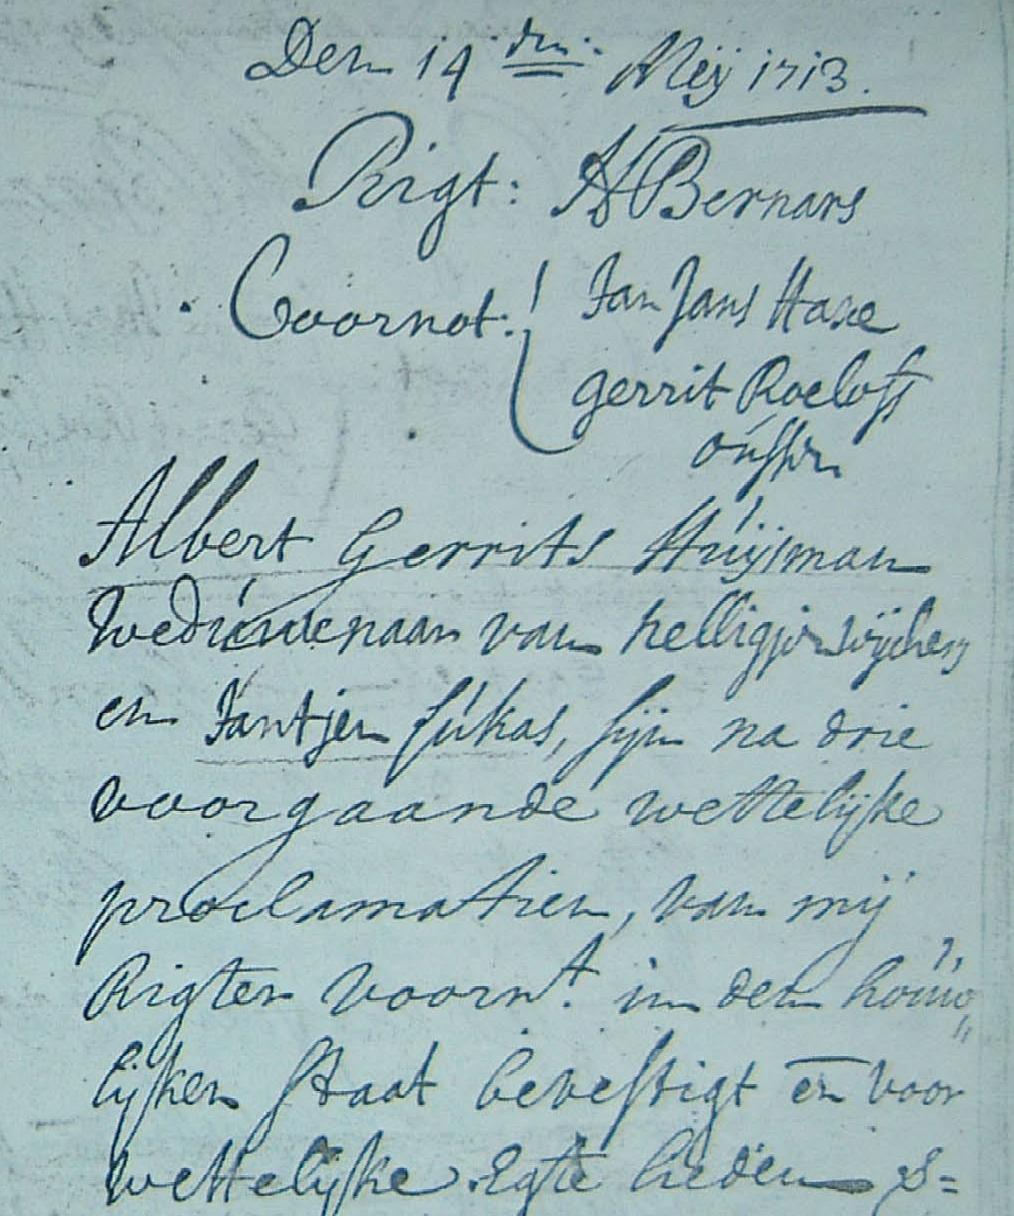 Den 14 den. Meÿ 1713.
Rigt: H Bernars
Coornot: Jan Jans Hase
gerrit Roelofs
Albert Gerrits Húÿsman
weduwenaar van helligjen
en Jantjen fúkas, sijn na drie
voorgaande wettelijke
proclamatien, van mij
Rigter voornt. in den houw„
lijken staat bevestigt en voor
wettelijke Egte lieden